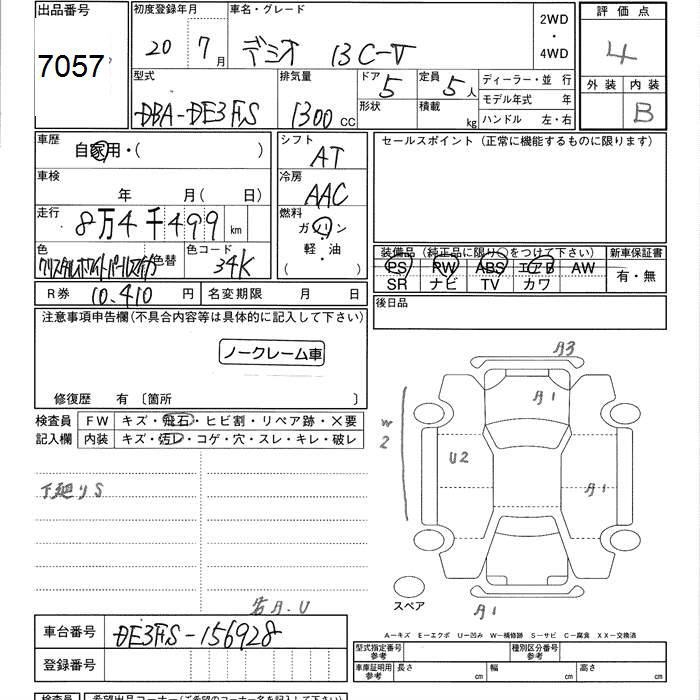 出品番号
7057
初度登録年月
20 7月
車名・グレード
デミオ 13C-V
2WD
・
4WD
評価点
4
外装 内装
B
型式
DBA-DE3FS
排気量
1300 cc
ドア 5
形状
定員 5人
積載 kg
ディーラー・並行
モデル年式 年
ハンドル 左・右
車歴
自家用・( )
車検
年 月( 日)
走行
8万4千499 km
色
クリスタルホワイトパール
色替
色コード
34K
シフト
AT
冷房
AAC
燃料
ガソリン
軽・油
( )
セールスポイント (正常に機能するものに限ります)
装備品 (純正品に限り○をつけて下さい)
PS PW ABS エアB AW
SR ナビ TV カワ
新車保証書
有・無
R券 10,410 円
名変期限 月 日
後日品
注意事項申告欄(不具合内容等は具体的に記入して下さい)
ノークレーム車
修復歴 有 〔箇所 〕
検査員
記入欄
FW キズ・飛石・ヒビ割・リペア跡・×要
内装 キズ・汚レ・コゲ・穴・スレ・キレ・破レ
下廻りS
若A.U
A3
A1
W
2
U2
A1
A1
スペア
A-キズ E-エクボ U-凹み W-補修跡 S-サビ C-腐食 XX-交換済
車台番号
DE3FS-156928
登録番号
型式指定番号
参考
種別区分番号
参考
車庫証明用
参考
長さ cm
幅 cm
高さ cm
検査員
希望出品コーナー(ご希望のコーナー名を記入して下さい)